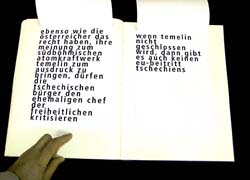 ebenso wie die
österreicher das
recht haben, ihre
meinung zum
südböhmischen
atomkraftwerk
temelin zum
ausdruck zu
bringen, dürfen
die
tschechischen
bürger den
ehemaligen chef
der
freiheitlichen
kritisieren
wenn temelin
nicht
geschlossen
wird, dann gibt
es auch keinen
eu-beitritt
tschechiens